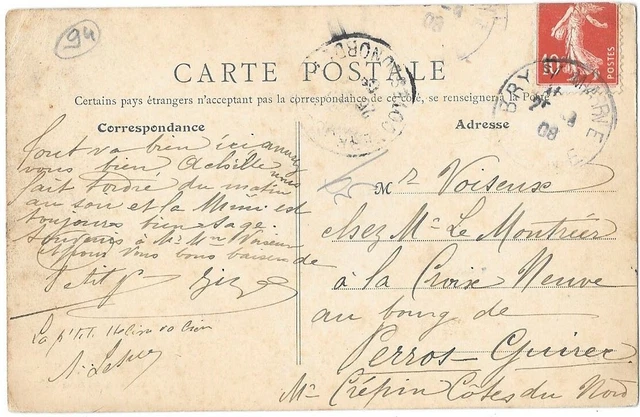 94
CARTE POSTALE
Certains pays étrangers n'acceptant pas la correspondance de ce côté, se renseigner à la Poste
Correspondance
Tout va bien ici
vous bien
du matin
au soir et la Mimi est
toujours bien sage
à Mr Mme Voiseux
et pour vous bons baisers de
Petit
La p'tit va bien
Adresse
Mr Voiseux
chez Mr Le Montréer
à la Croix Neuve
au bourg de
Perros-Guirec
Mr Crépin Côtes du Nord
10
POSTES
BRY S MARNE
NORD